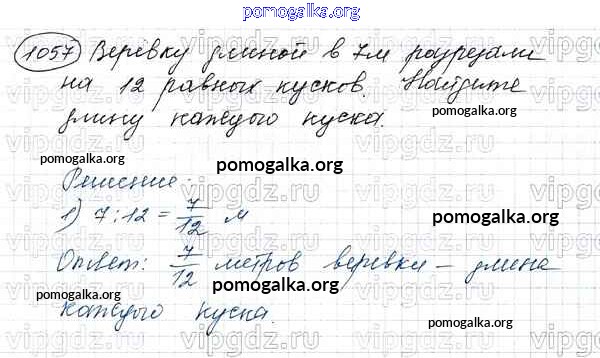 pomogalka.org
1057 Верёвку длиной в 7м разрезали
на 12 равных кусков. Найдите
pomogalka.org pomogalka.org
длину каждого куска.
pomogalka.org
Решение:
1) 7:12 = 7/12 м
pomogalka.org
Ответ: 7/12 метров веревки – длина
pomogalka.org
каждого куска.
pomogalka.org
vipgdz.ru